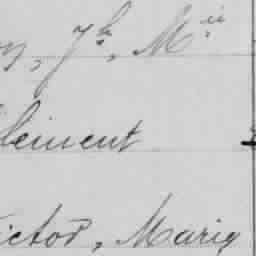 Jh, Mie
lement
ictor, Marie